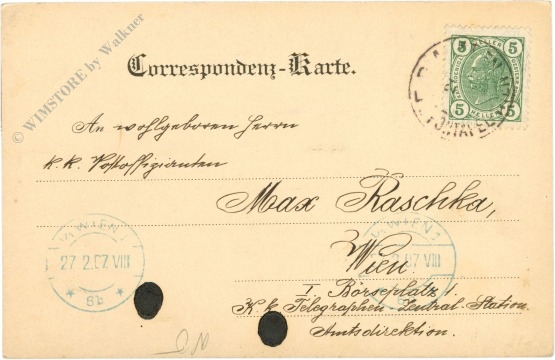 © WIMSTORE by Walkner
Correspondenz-Karte.
5 HELLER 5
5 HELLER 5
PONTAFEL
An wohlgeboren Herrn
k. k. Postoffizianten
Max Raschka,
Wien
I. Börseplatz 1.
K. k. Telegraphen-Zentral-Station.
Amtsdirektion.
WIEN 1
27. 2.07. VIII
* 6b *
WIEN 1
2.07 VIII
6b *